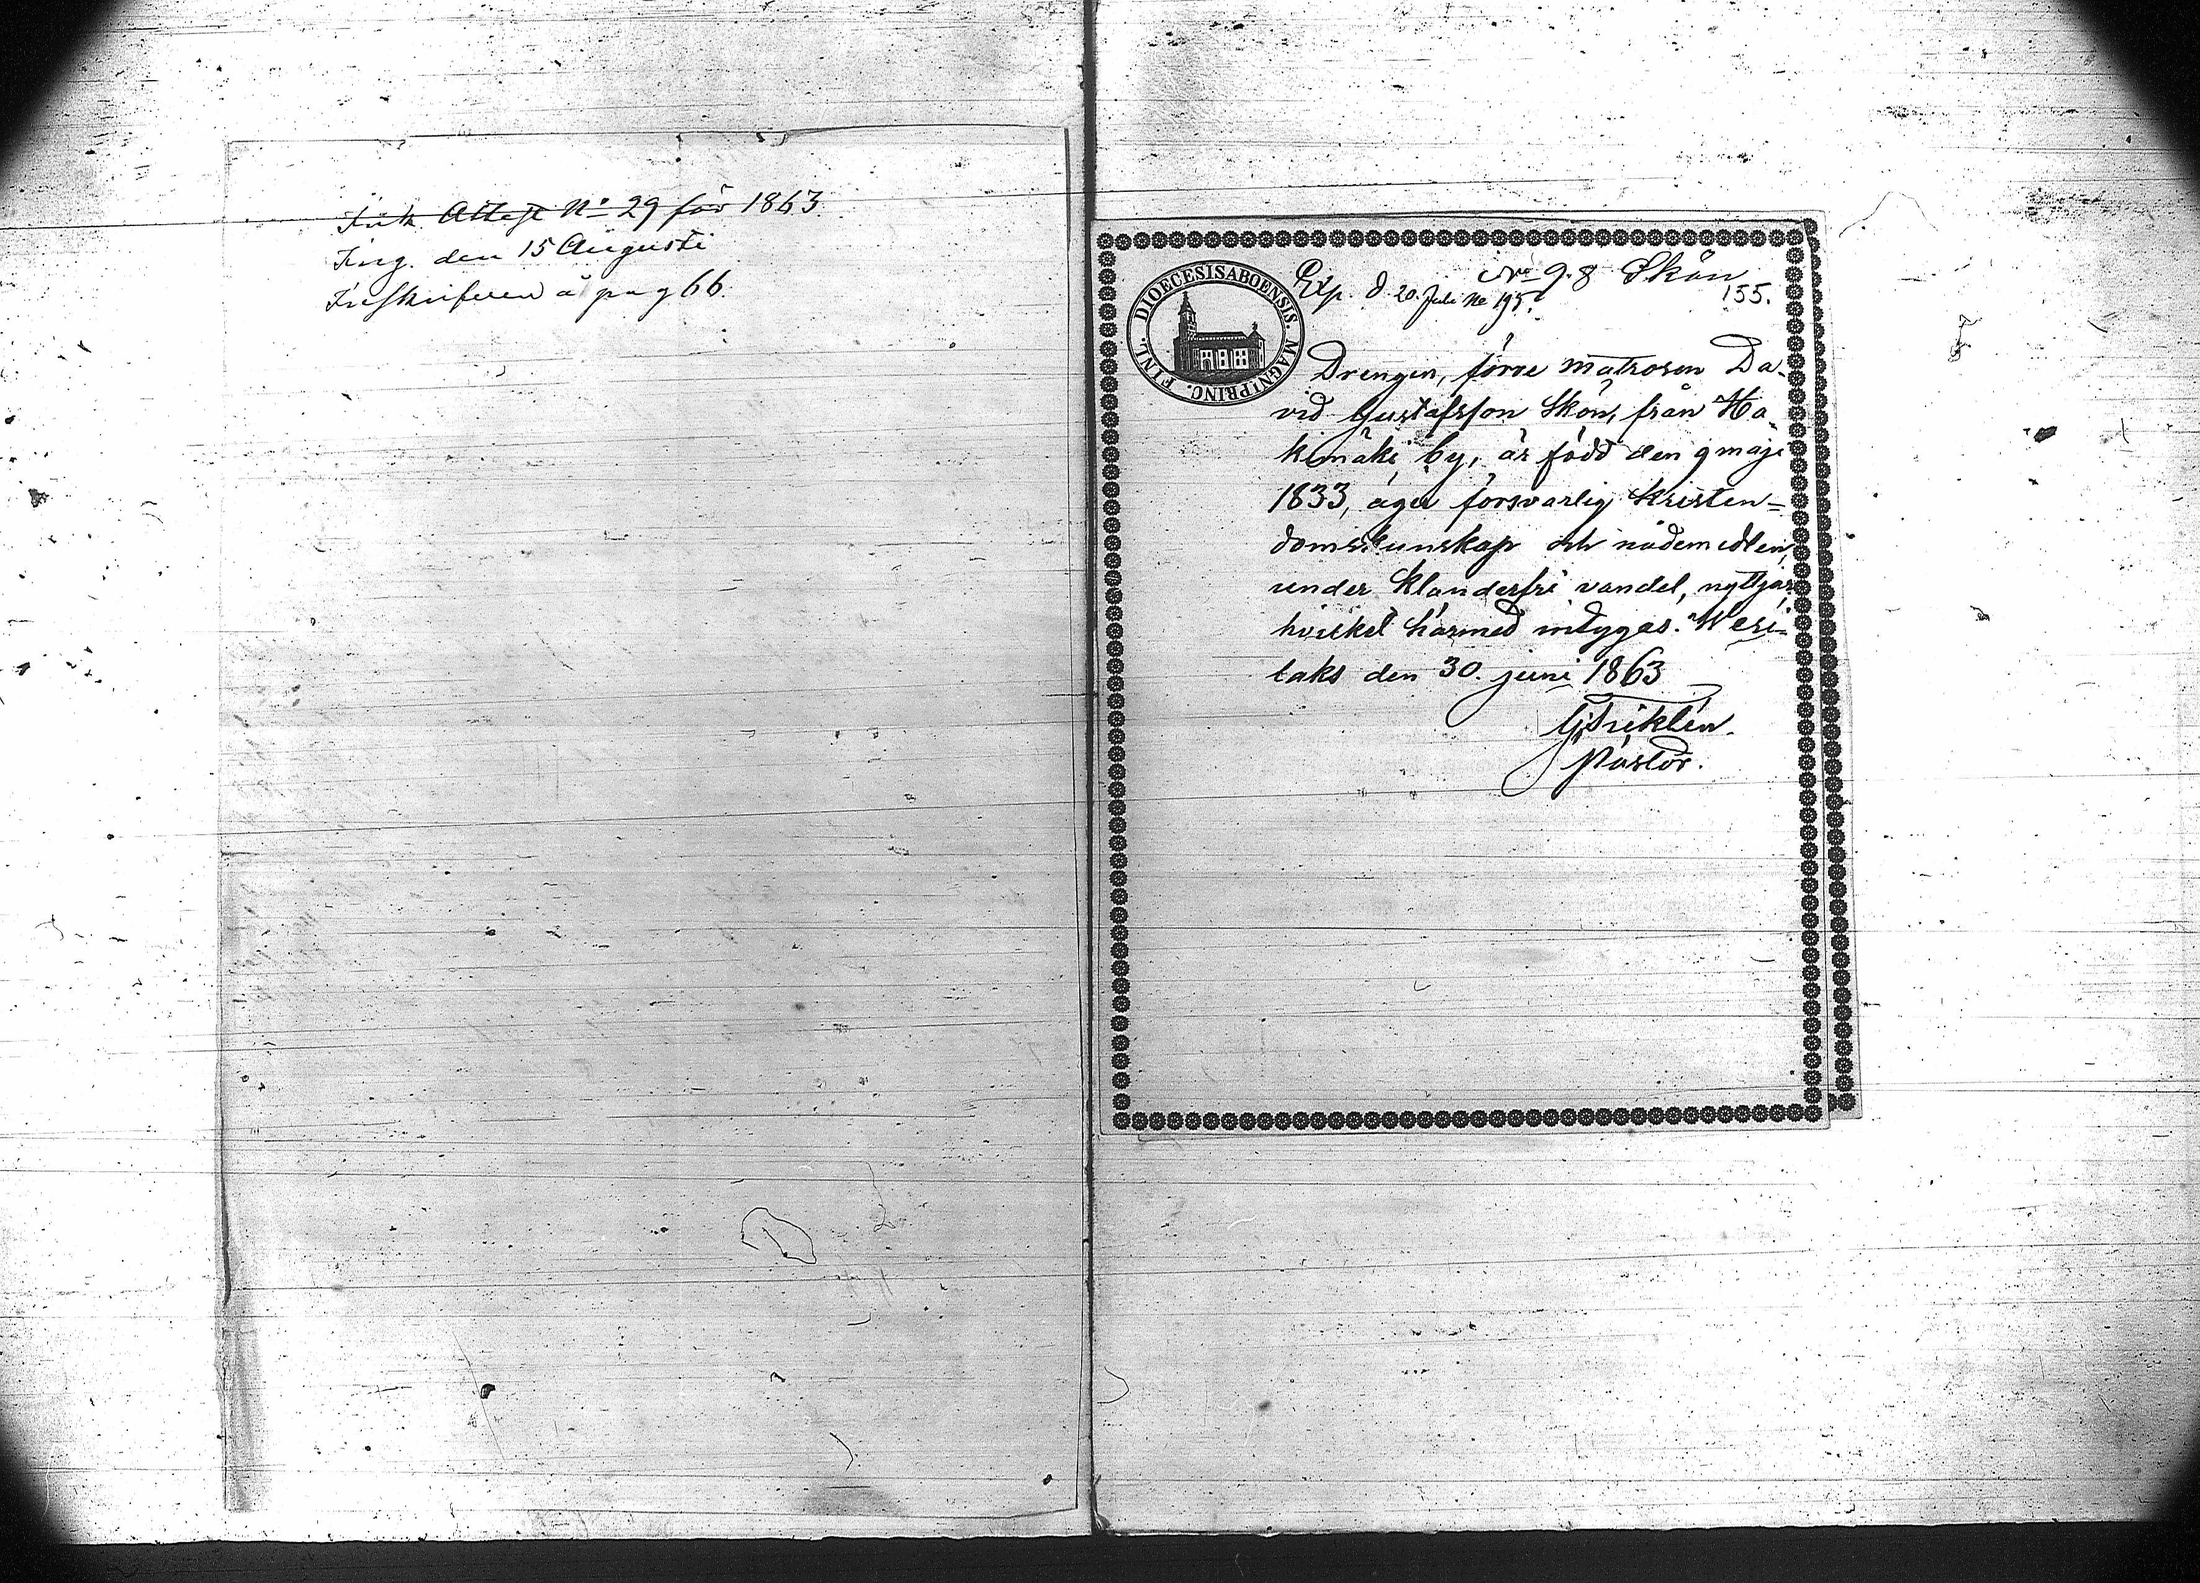 Attest No 29 för 1863.
Ing. den 15 Augusti
Inskrifven å pag 66.
DIOECESIS ABOENSIS. MAGN: PRINC. FINL.
No 98 Skön
Exp. d. 20. Juli No 195.
155.
Drengen, förre matrosen Da-
vid Gustafsson Skön, från Ha-
kimäki by, är född den 9 maji
1833, äger försvarlig kristen=
domskunskap och nådemedlen,
under klanderfri vandel, nyttjar
hvilket härmed intygas. Wesi-
laks den 30. juni 1863
Pastor.